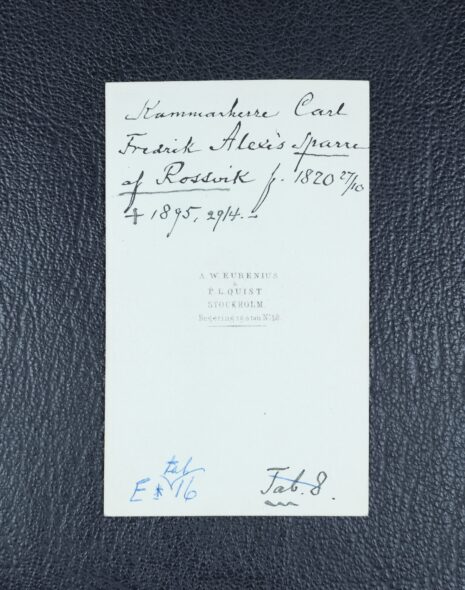 Kammarherre Carl
Fredrik Alexis Sparre
af Rossvik f. 1820 27/10
† 1895, 29/4. –
A. W. EURENIUS
&
P. L. QUIST
STOCKHOLM.
Regeringsgatan No 18.
tab
E 16
Tab. 8.